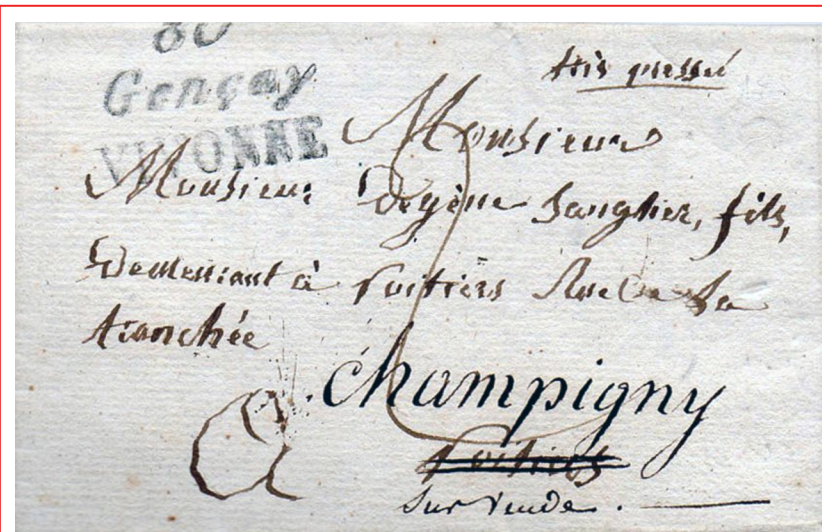 80
Gençay
VIVONNE
très pressé
Monsieur
Monsieur Sanglier, fils,
Demeurant à Poitiers Rue de la
tranchée
à champigny
Poitiers
sur vende.